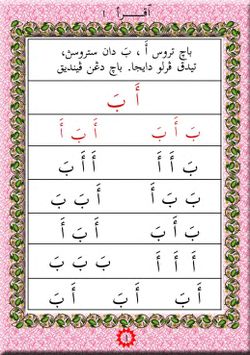 اقرأ ١
باچ تروس أَ ، بَ دان ستروسڽ،
تيدق ڤرلو دايجا. باچ دڠن ڤينديق
أَ بَ
بَ أَ بَ أَ بَ أَ
بَ أَ أَ أَ أَ بَ
أَ بَ بَ بَ بَ أَ
بَ أَ بَ أَ بَ أَ
أَ أَ أَ بَ بَ بَ
بَ أَ بَ أَ بَ أَ
١